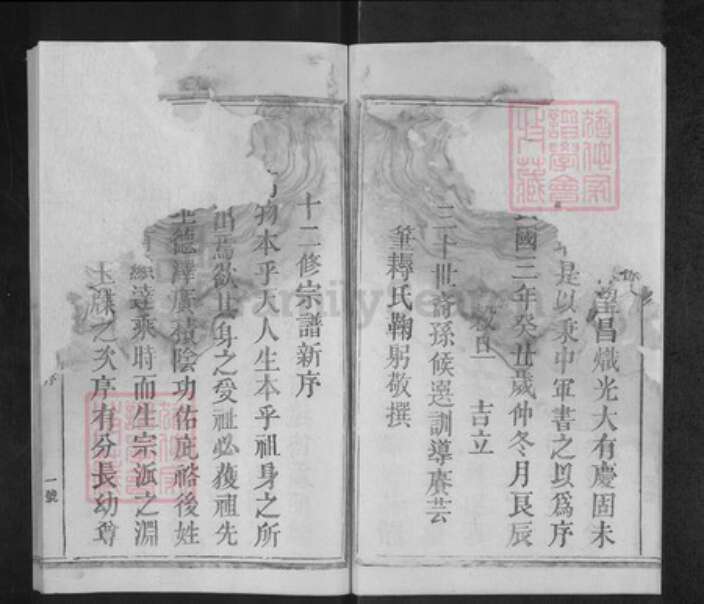 望昌熾光大有慶固未
是以秉中軍書之以爲序
國三年癸丑歲仲冬月良辰
穀旦 吉立
三十世裔孫候選訓導賡芸
筆耨氏鞠躬敬撰
十二修宗譜新序
物本乎天人生本乎祖身之所
出焉欲其身之受祉必獲祖先
德澤廣積陰功佑庇裕後姓
遠乘時而生宗派之淵
玉牒之次序有分長幼尊
序
一號
FamilySearch